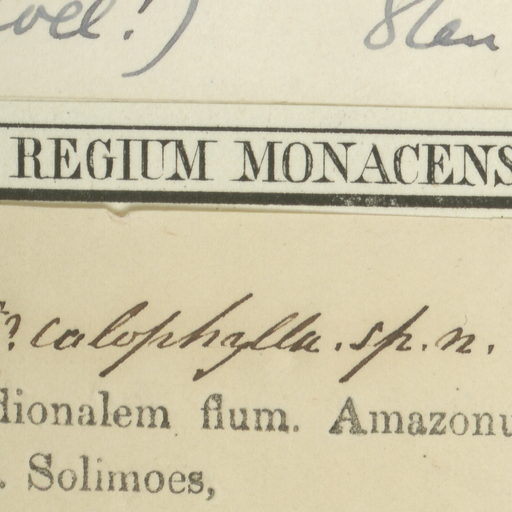 REGIUM MONACENS
? calophylla. sp. n.
dionalem flum. Amazonu
. Solimoes,